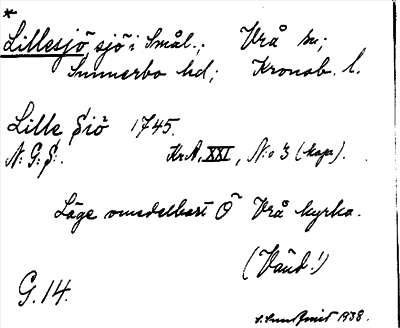 *
Lillesjö, sjö i Smål.; Vrå sn;
Sunnerbo hd; Kronob. l.
Lille Siö 1745.
N: G: S:. Kr.A, XXI, N:o 3 (kop).
Läge omedelbart Ö Vrå kyrka.
(Vänd!)
G. 14.
1938.